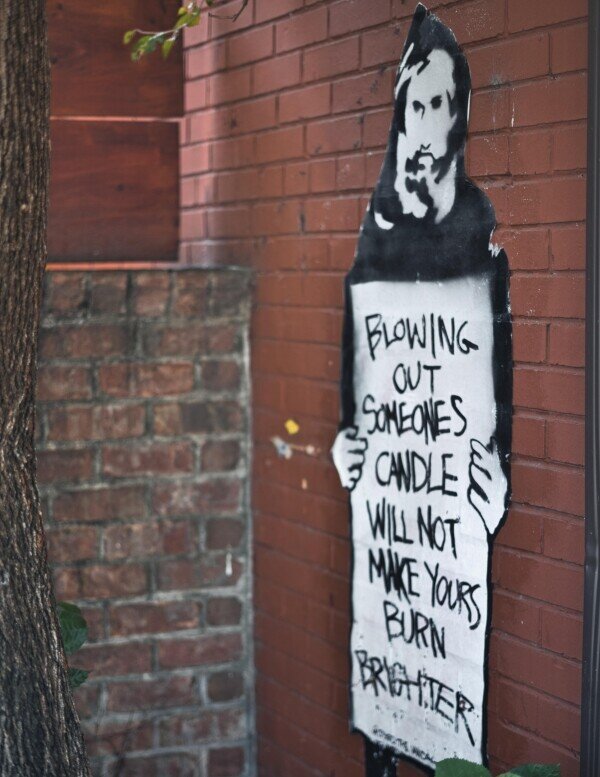 BLOWING
OUT
SOMEONES
CANDLE
WILL NOT
MAKE YOURS
BURN
BRIGHTER